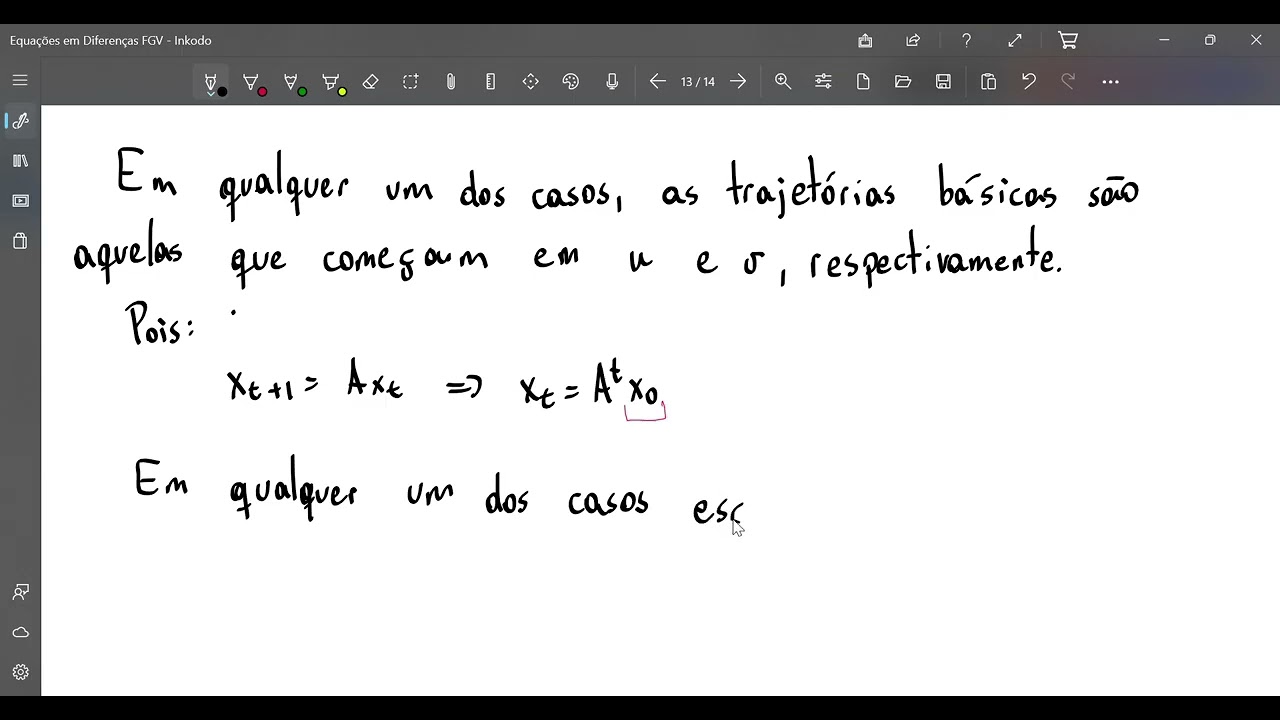 Equações em Diferenças FGV - Inkodo
13 / 14
Em qualquer um dos casos, as trajetórias básicas são
aquelas que começam em u e v, respectivamente.
Pois:
x_{t+1} = A x_t => x_t = A^t x_0
Em qualquer um dos casos esc